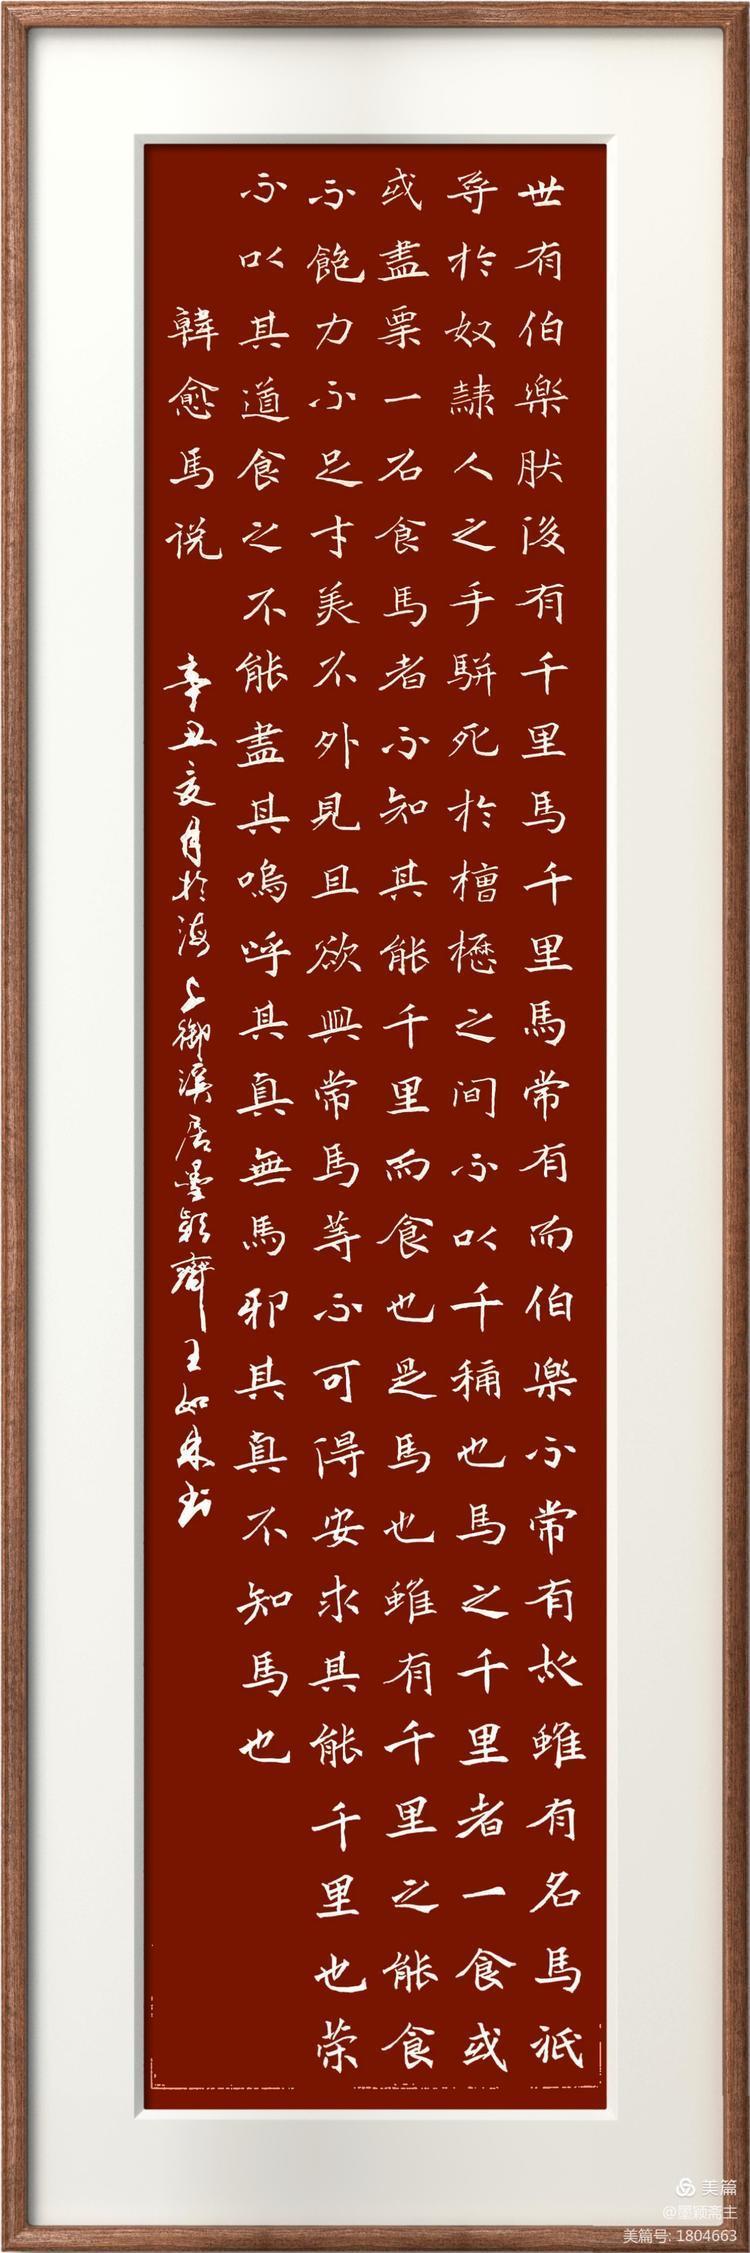 世有伯樂肰後有千里馬千里馬常有而伯樂不常有故雖有名馬祇
辱於奴隸人之手駢死於槽櫪之間不以千稱也馬之千里者一食或
或盡粟一石食馬者不知其能千里而食也是馬也雖有千里之能食
不飽力不足才美不外見且欲與常馬等不可得安求其能千里也荣
不以其道食之不能盡其嗚呼其真無馬邪其真不知馬也
韓愈馬说 辛丑亥月於海上御溪居墨颖齋王如书
美篇
@墨颖斋主
美篇号: 1804663